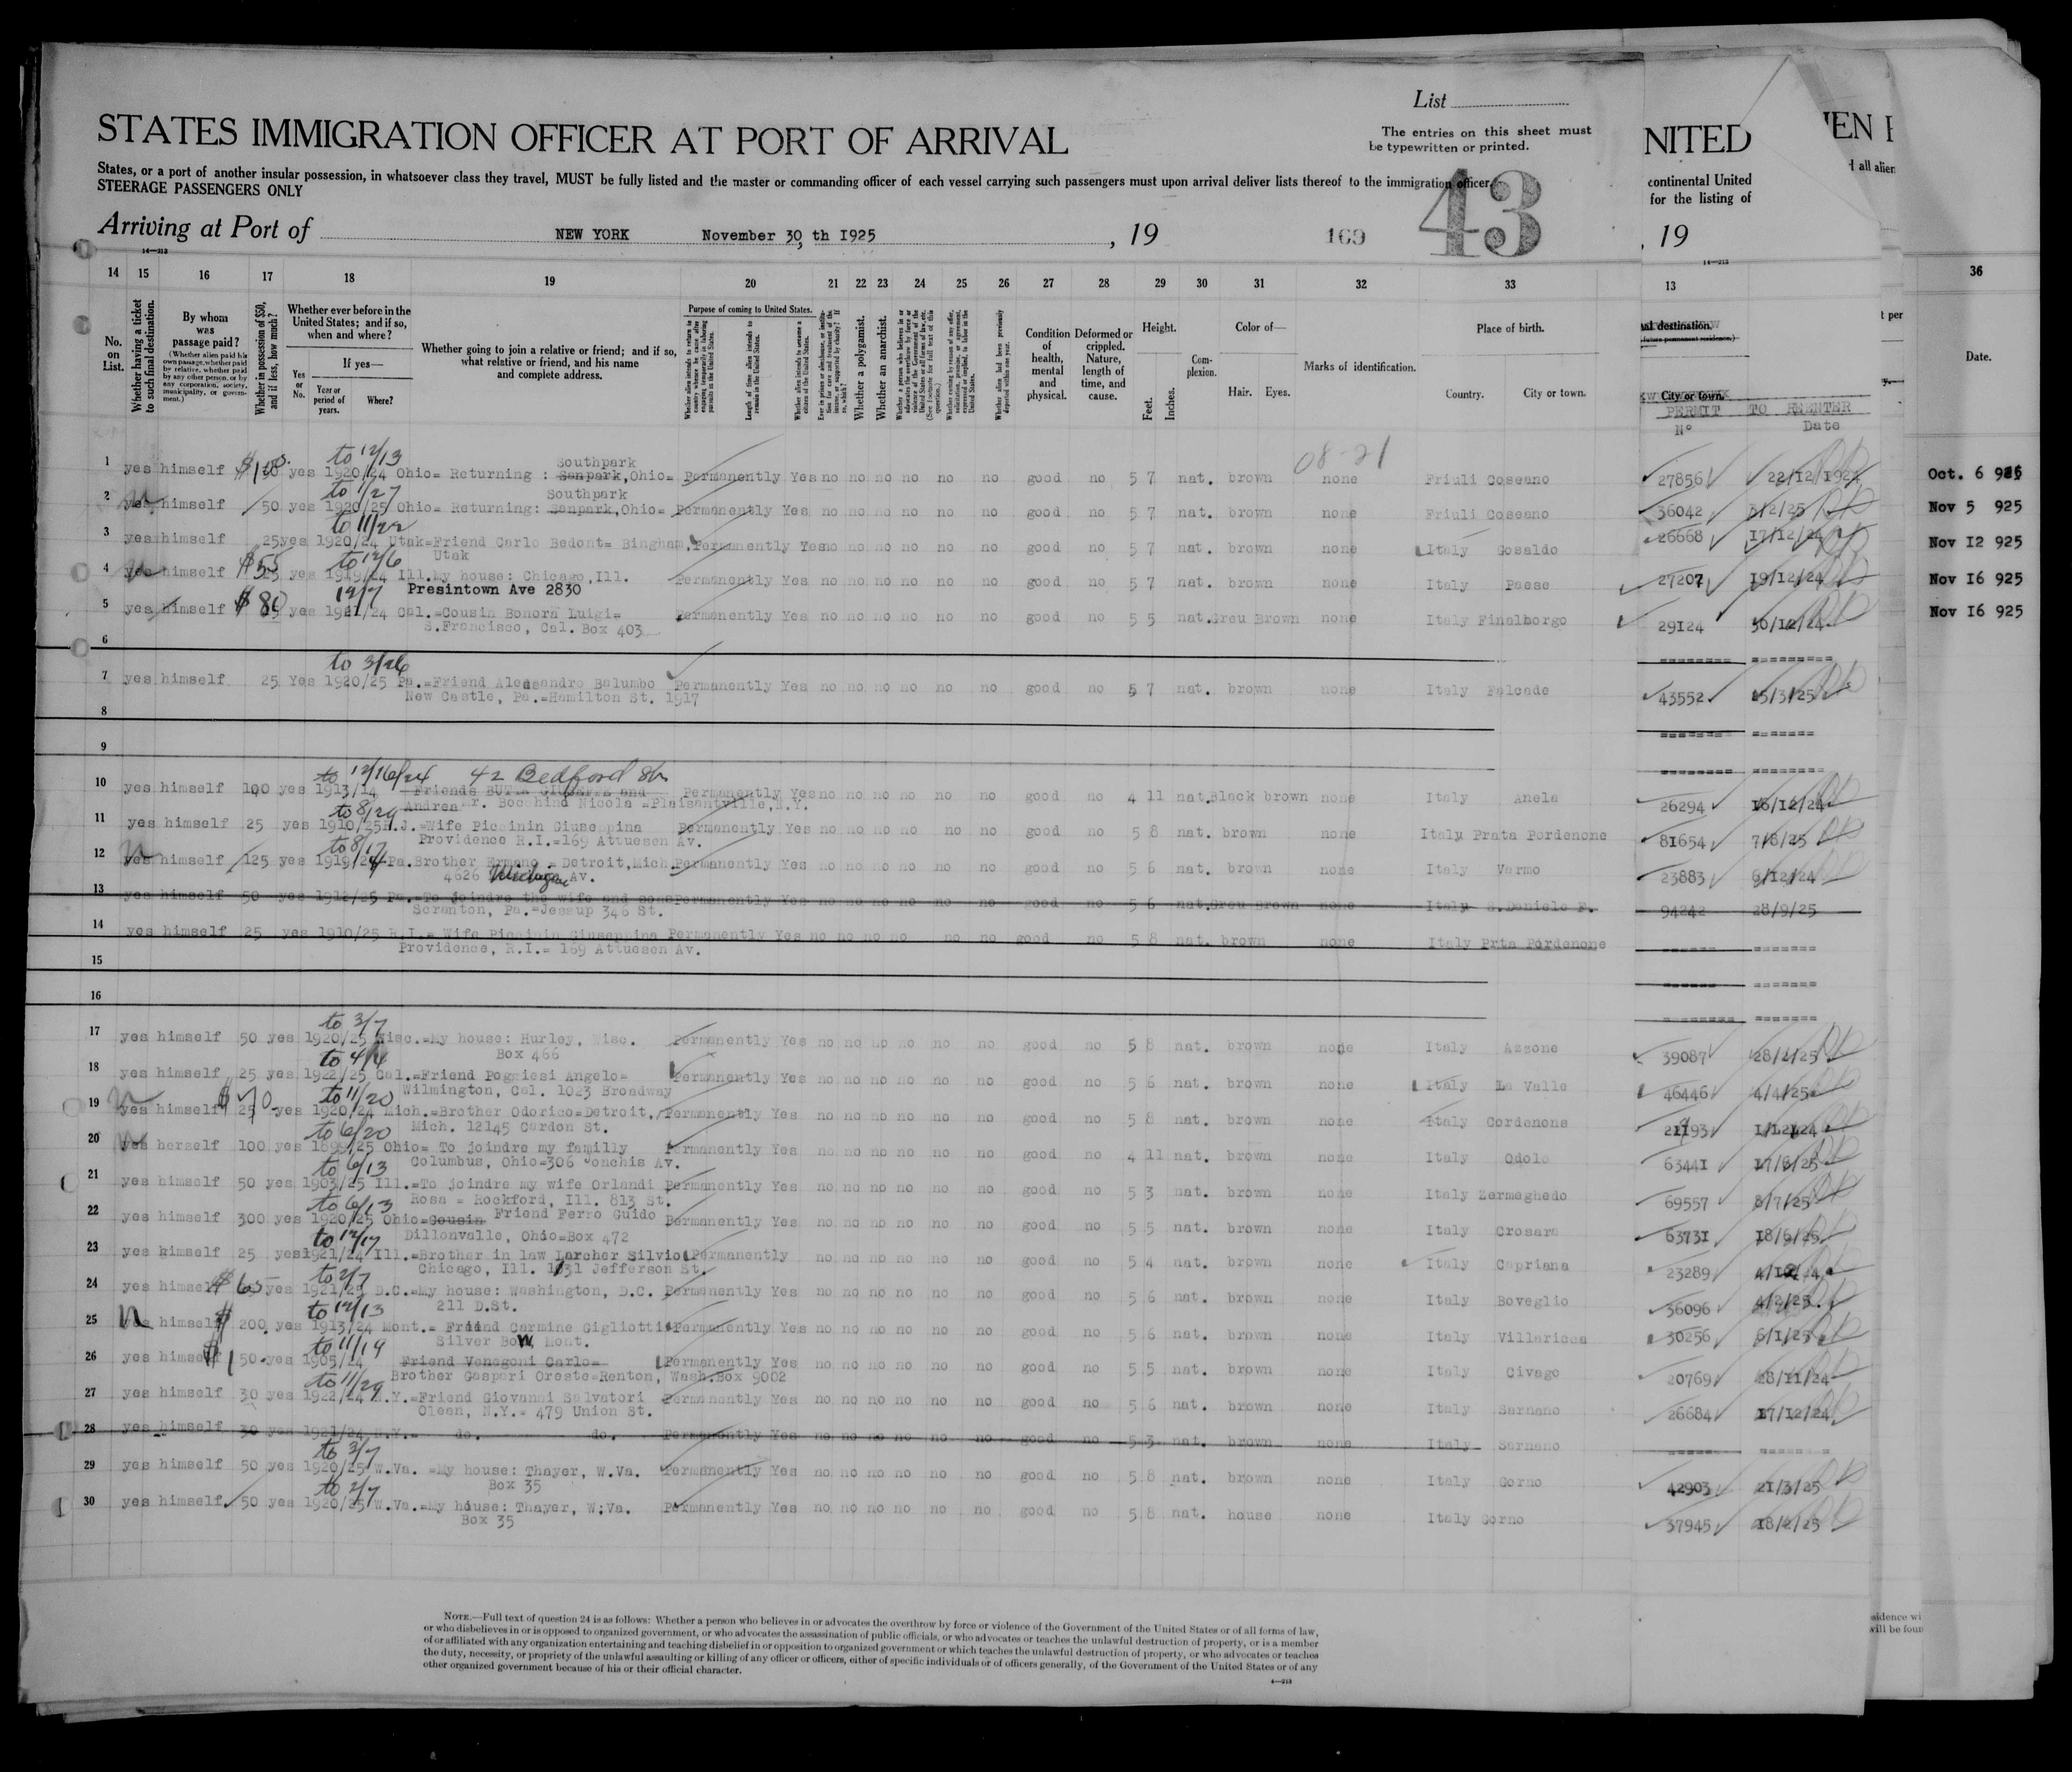 List
STATES IMMIGRATION OFFICER AT PORT OF ARRIVAL
The entries on this sheet must
be typewritten or printed.
States, or a port of another insular possession, in whatsoever class they travel, MUST be fully listed and the master or commanding officer of each vessel carrying such passengers must upon arrival deliver lists thereof to the immigration officer
STEERAGE PASSENGERS ONLY
43
Arriving at Port of NEW YORK November 30, th 1925 , 19 169
NITED
continental United
for the listing of
, 19
IEN
d all alien
14 15 16 17 18 19 20 21 22 23 24 25 26 27 28 29 30 31 32 33 13 36
No. on List.
Whether having a ticket to such final destination.
By whom was passage paid?
(Whether alien paid his own passage, whether paid by relative, whether paid by any other person, or by any corporation, society, municipality, or government.)
Whether in possession of $50, and if less, how much?
Whether ever before in the United States; and if so, when and where?
Yes or No.
If yes—
Year or period of years.
Where?
Whether going to join a relative or friend; and if so, what relative or friend, and his name and complete address.
Purpose of coming to United States.
Whether a polygamist.
Whether an anarchist.
Condition of health, mental and physical.
Deformed or crippled. Nature, length of time, and cause.
Height.
Feet. Inches.
Complexion.
Color of—
Hair. Eyes.
Marks of identification.
Place of birth.
Country. City or town.
City or town.
PERMIT TO REENTER
No Date
Date.
1 yes himself yes 1920/24 to 12/13 Ohio= Returning : Southpark Senpark, Ohio= Permanently Yes no no no no no no good no 5 7 nat. brown none Friuli Coseano 27856 22/12/1924 Oct. 6
08-21
2 yes himself 50 yes 1920/25 to 1/27 Ohio= Returning: Southpark Senpark, Ohio= Permanently Yes no no no no no no good no 5 7 nat. brown none Friuli Coseano 36042 3/2/25 Nov 5 925
3 yes himself 25 yes 1920/24 to 11/22 Utak=Friend Carlo Bedont= Bingham, Permanently Yes no no no no no no good no 5 7 nat. brown none Italy Gosaldo 26668 17/12/24 Nov 12 925
Utak
4 yes himself $55 yes 1919/24 to 12/6 Ill. My house: Chicago, Ill. Permanently Yes no no no no no no good no 5 7 nat. brown none Italy Paese 27207 19/12/24 Nov 16 925
Presintown Ave 2830
5 yes himself $80 yes 1921/24 12/7 Cal.=Cousin Bonora Luigi= Permanently Yes no no no no no no good no 5 5 nat. Greu Brown none Italy Finalborgo 29124 30/12/24 Nov 16 925
S.Francisco, Cal. Box 403
6
7 yes himself 25 Yes 1920/25 to 3/26 Pa.=Friend Alessandro Balumbo Permanently Yes no no no no no no good no 5 7 nat. brown none Italy Falcade 43552 25/3/25
New Castle, Pa.=Hamilton St. 1917
8
9
10 yes himself 100 yes 1913/14 to 12/16/24 42 Bedford Friends BUTTA GIUSEPPE and Permanently Yes no no no no no no good no 4 11 nat. Black brown none Italy Anela 26294 16/12/24
Andrea Mr. Bocchind Nicola =Plaisantville, N.Y.
11 yes himself 25 yes 1910/25 to 8/29 R.I.=Wife Piccinin Giuseppina Permanently Yes no no no no no no good no 5 8 nat. brown none Italy Prata Pordenone 81654 7/8/25
Providence R.I.=169 Attuesen Av.
12 yes himself 125 yes 1919/24 to 8/17 Pa. Brother Ermano = Detroit, Mich. Permanently Yes no no no no no no good no 5 6 nat. brown none Italy Varmo 23883 6/12/24
4626 Michigan Av.
13 yes himself 50 yes 1912/25 Pa.=To joindre the wife and sons Permanently Yes no no no no no no good no 5 6 nat. Greu Brown none Italy S.Daniele F. 94242 28/9/25
Scranton, Pa.=Jessup 346 St.
14 yes himself 25 yes 1910/25 R.I.= Wife Piccinin Giuseppina Permanently Yes no no no no no no good no 5 8 nat. brown none Italy Prta Pordenone
Providence, R.I.= 169 Attuesen Av.
15
16
17 yes himself 50 yes 1920/25 to 3/7 Wisc.=My house: Hurley, Wisc. Permanently Yes no no no no no no good no 5 8 nat. brown none Italy Azzone 39087 28/2/25
Box 466
18 yes himself 25 yes 1922/25 to 4/4 Cal.=Friend Poggiesi Angelo= Permanently Yes no no no no no no good no 5 6 nat. brown none Italy La Valle 46446 4/4/25
Wilmington, Cal. 1023 Broadway
19 yes himself $70 yes 1920/24 to 11/20 Mich.=Brother Odorico=Detroit, Permanently Yes no no no no no no good no 5 8 nat. brown none Italy Cordenons 21193 1/12/24
Mich. 12145 Cardon St.
20 yes herself 100 yes 1899/25 to 6/20 Ohio= To joindre my familly Permanently Yes no no no no no no good no 4 11 nat. brown none Italy Odolo 63441 17/6/25
Columbus, Ohio=306 Conchis Av.
21 yes himself 50 yes 1903/25 to 6/13 Ill.=To joindre my wife Orlandi Permanently Yes no no no no no no good no 5 3 nat. brown none Italy Zermeghedo 69557 8/7/25
Rosa = Rockford, Ill. 813 St.
22 yes himself 300 yes 1920/25 to 6/13 Ohio=Cousin Friend Ferro Guido Permanently Yes no no no no no no good no 5 5 nat. brown none Italy Crosara 63731 18/6/25
Dillonvalle, Ohio=Box 472
23 yes himself 25 yes 1921/24 to 12/17 Ill.=Brother in law Larcher Silvio Permanently no no no no no no good no 5 4 nat. brown none Italy Capriana 23289 4/12/24
Chicago, Ill. 1031 Jefferson St.
24 yes himself $65 yes 1921/25 to 2/7 D.C.=My house: Washington, D.C. Permanently Yes no no no no no no good no 5 6 nat. brown none Italy Boveglio 36096 4/2/25
211 D.St.
25 yes himself $200 yes 1913/24 to 12/13 Mont.= Friend Carmine Gigliotti= Permanently Yes no no no no no no good no 5 6 nat. brown none Italy Villaricca 30256 6/1/25
Silver BoW, Mont.
26 yes himself 50 yes 1905/24 to 11/19 Friend Venegoni Carlo= Permanently Yes no no no no no no good no 5 5 nat. brown none Italy Civago 20769 28/11/24
Brother Gaspari Oreste=Renton, Wash. Box 9002
27 yes himself 30 yes 1922/24 to 11/29 N.Y.=Friend Giovanni Salvatori Permanently Yes no no no no no no good no 5 6 nat. brown none Italy Sarnano 26684 17/12/24
Oleen, N.Y.= 479 Union St.
28 yes himself 30 yes 1921/24 N.Y.= do. do. Permanently Yes no no no no no no good no 5 3 nat. brown none Italy Sarnano
29 yes himself 50 yes 1920/25 to 3/7 W.Va. =My house: Thayer, W.Va. Permanently Yes no no no no no no good no 5 8 nat. brown none Italy Gorno 42903 21/3/25
Box 35
30 yes himself 50 yes 1920/25 to 2/7 W.Va.=My house: Thayer, W.Va. Permanently Yes no no no no no no good no 5 8 nat. house none Italy Gorno 37945 18/2/25
Box 35
NOTE.—Full text of question 24 is as follows: Whether a person who believes in or advocates the overthrow by force or violence of the Government of the United States or of all forms of law,
or who disbelieves in or is opposed to organized government, or who advocates the assassination of public officials, or who advocates or teaches the unlawful destruction of property, or is a member
of or affiliated with any organization entertaining and teaching disbelief in or opposition to organized government or which teaches the unlawful destruction of property, or who advocates or teaches
the duty, necessity, or propriety of the unlawful assaulting or killing of any officer or officers, either of specific individuals or of officers generally, of the Government of the United States or of any
other organized government because of his or their official character.